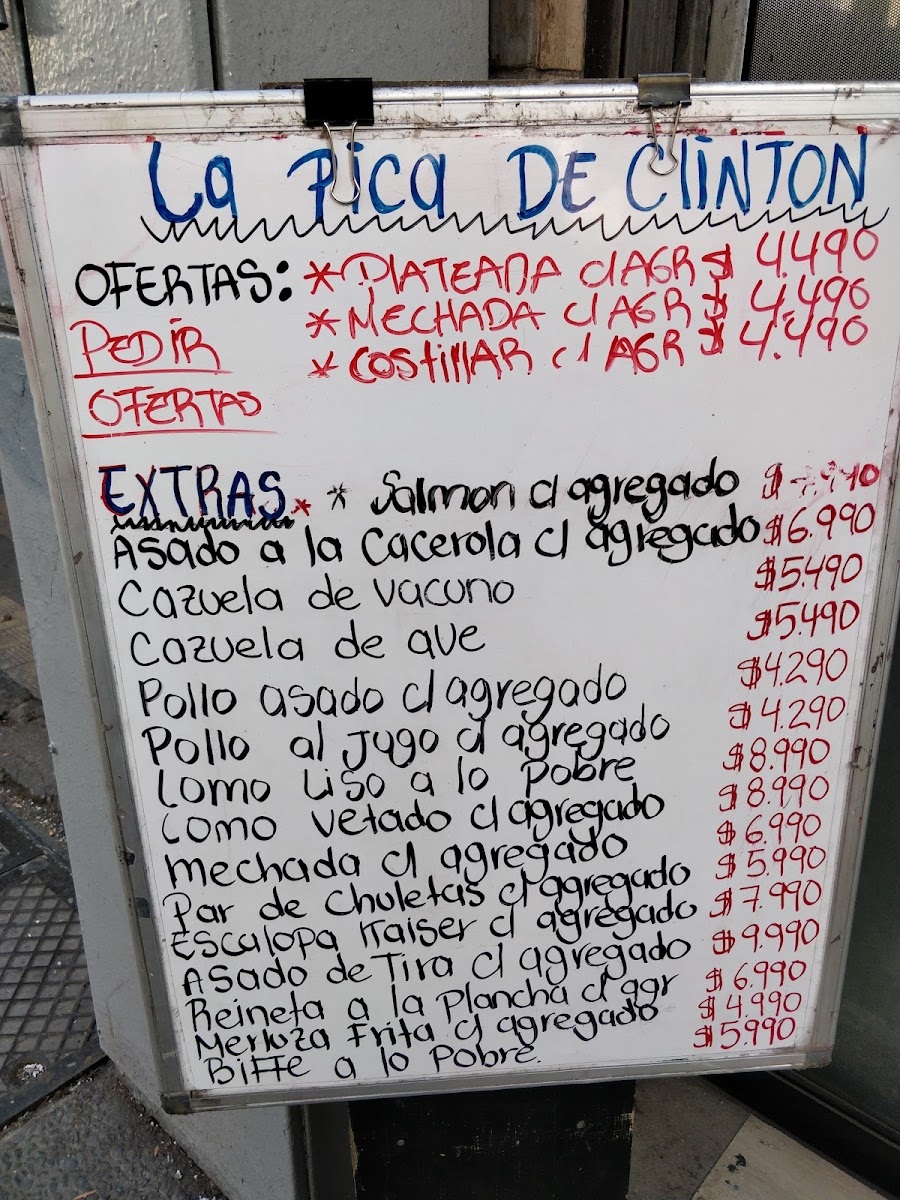 La Pica DE CLINTON
OFERTAS: * PLATEADA c/AGR $ 4.490
PEDIR * MECHADA c/ AGR $ 4.490
OFERTAS * COSTILLAR c/ AGR $ 4.490
EXTRAS * * Salmon c/ agregado
Asado a la Cacerola c/ agregado $6.990
Cazuela de vacuno $5.490
Cazuela de ave $5.490
Pollo asado c/ agregado $4.290
Pollo al jugo c/ agregado $4.290
Lomo Liso a lo Pobre $8.990
Lomo Vetado c/ agregado $8.990
Mechada c/ agregado $6.990
Par de Chuletas c/ agregado $5.990
Escalopa Kaiser c/ agregado $7.990
Asado de Tira c/ agregado $9.990
Reineta a la Plancha c/ agr $6.990
Merluza Frita c/ agregado $4.990
Biffe a lo Pobre. $5.990